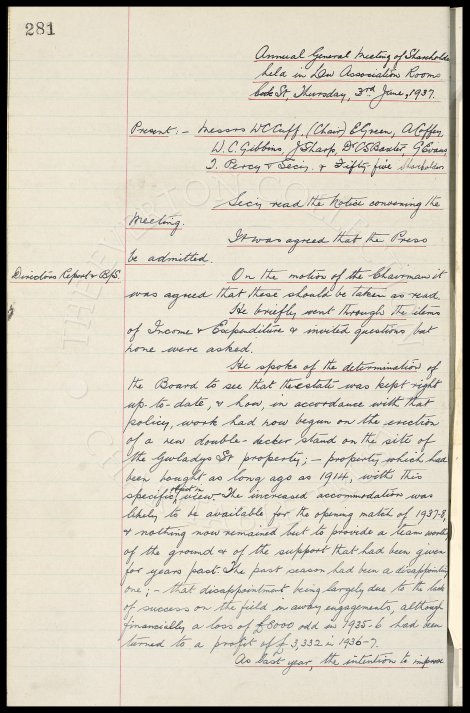 281
Annual General Meeting of Shareholde
held in Law Association Rooms
Cook St, Thursday, 3rd June, 1937.
Present:- Messrs W C Cuff, (Chair) E Green, A Coffey,
W. C. Gibbins, J Sharp, Dr C S Baxter, G Evans,
T. Percy & Secy. & Fifty five Shareholders.
Secy read the Notice convening the
Meeting.
It was agreed that the Press
be admitted.
Directors Report & B/S. On the motion of the Chairman it
was agreed that these should be taken as read.
He briefly went through the items
of Income & Expenditure & invited questions, but
none were asked.
He spoke of the determination of
the Board to see that the estate was kept right
up-to-date, & how, in accordance with that
policy, work had now begun on the erection
of a new double-decker stand on the site of
the Gwladys St property; - property which had
been bought as long ago as 1914, with this
specific object in view. The increased accommodation was
likely to be available for the opening match of 1937-8,
& nothing now remained but to provide a team worth
of the ground & of the support that had been given
for years past. The past season had been a disappointing
one; - that disappointment being largely due to the lack
of success on the field in away engagements, although
financially a loss of £8000 odd in 1935-6 had been
turned to a profit of £3,332 in 1936-7.
As last year, the intention to improve
THE EVERTON COLLECTION